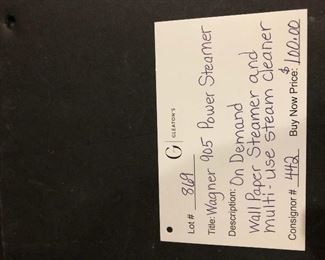 G | GLEATON'S
Lot # 869
Title: Wagner 905 Power Steamer
Description: On Demand
Wall Paper Steamer and
multi-use steam cleaner
Consignor # 442 Buy Now Price: $100.00